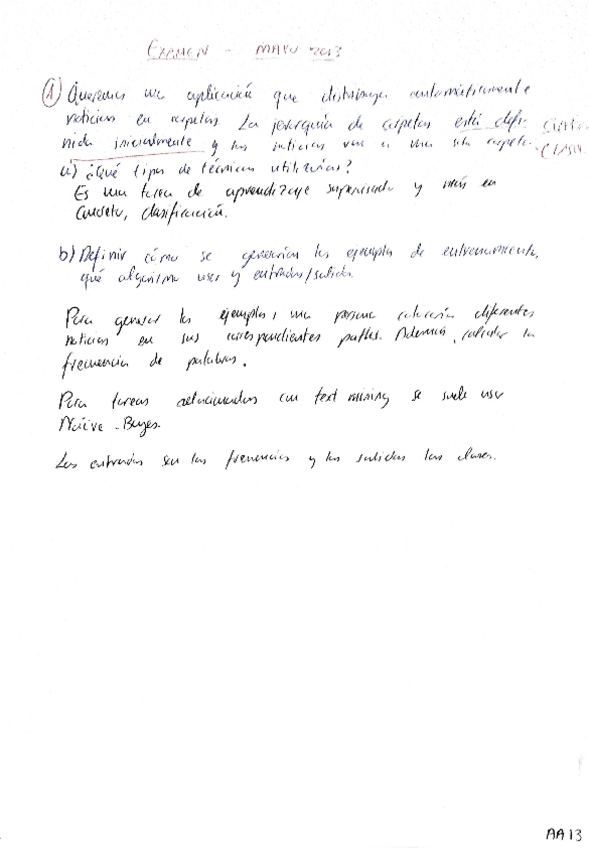 EXAMEN - MAYO 2013
① Queremos una aplicación que distribuya automáticamente
noticias en carpetas. La jerarquía de carpetas está defi-
nida inicialmente y las noticias van a una sola carpeta.
a) ¿Qué tipos de técnicas utilizarías?
Es una tarea de aprendizaje supervisado y más en
concreto, clasificación.
b) Definir cómo se generarían los ejemplos de entrenamiento,
qué algoritmo usar y entradas/salida.
Para generar los ejemplos, una persona colocaría diferentes
noticias en sus correspondientes paths. Además, calcular la
frecuencia de palabras.
Para tareas relacionadas con text mining se suele usar
Naive-Bayes.
Las entradas son las frecuencias y las salidas las clases.
AA13